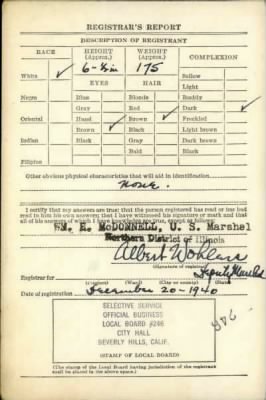 REGISTRAR'S REPORT
DESCRIPTION OF REGISTRANT
RACE HEIGHT (Approx.) WEIGHT (Approx.) COMPLEXION
White ✓ 6-½in 175 Sallow
EYES HAIR Light
Negro Blue Blonde Ruddy
Gray Red Dark ✓
Oriental Hazel Brown ✓ Freckled
Brown ✓ Black Light brown
Indian Black Gray Dark brown
Bald Black
Filipino
Other obvious physical characteristics that will aid in identification
None.
I certify that my answers are true; that the person registered has read or has had
read to him his own answers; that I have witnessed his signature or mark and that
all of his answers of which I have knowledge are true, except as follows:
WM. H. McDONNELL, U. S. Marshal
Northern District of Illinois
Albert Wohlers
(Signature of registrar)
Deputy Marshal
Registrar for
(Precinct) (Ward) (City or county) (State)
Date of registration December 20-1940
SELECTIVE SERVICE
OFFICIAL BUSINESS
LOCAL BOARD #246
CITY HALL
BEVERLY HILLS, CALIF.
(STAMP OF LOCAL BOARD)
(The stamp of the Local Board having jurisdiction of the registrant
shall be placed in the above space.)